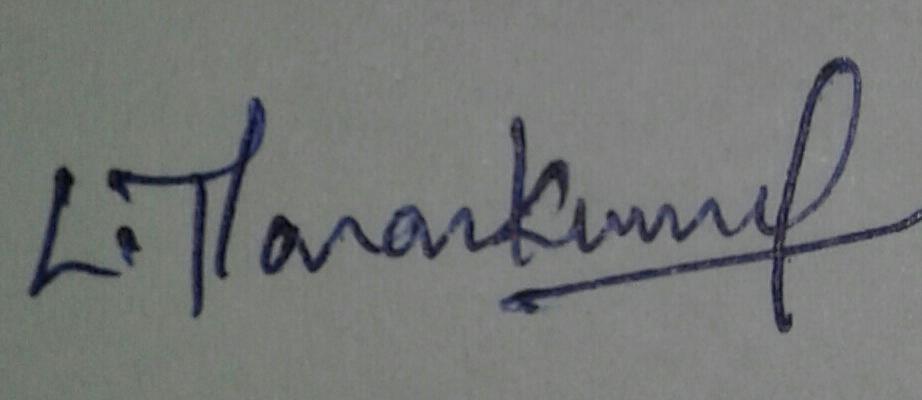 L. Tharankumar